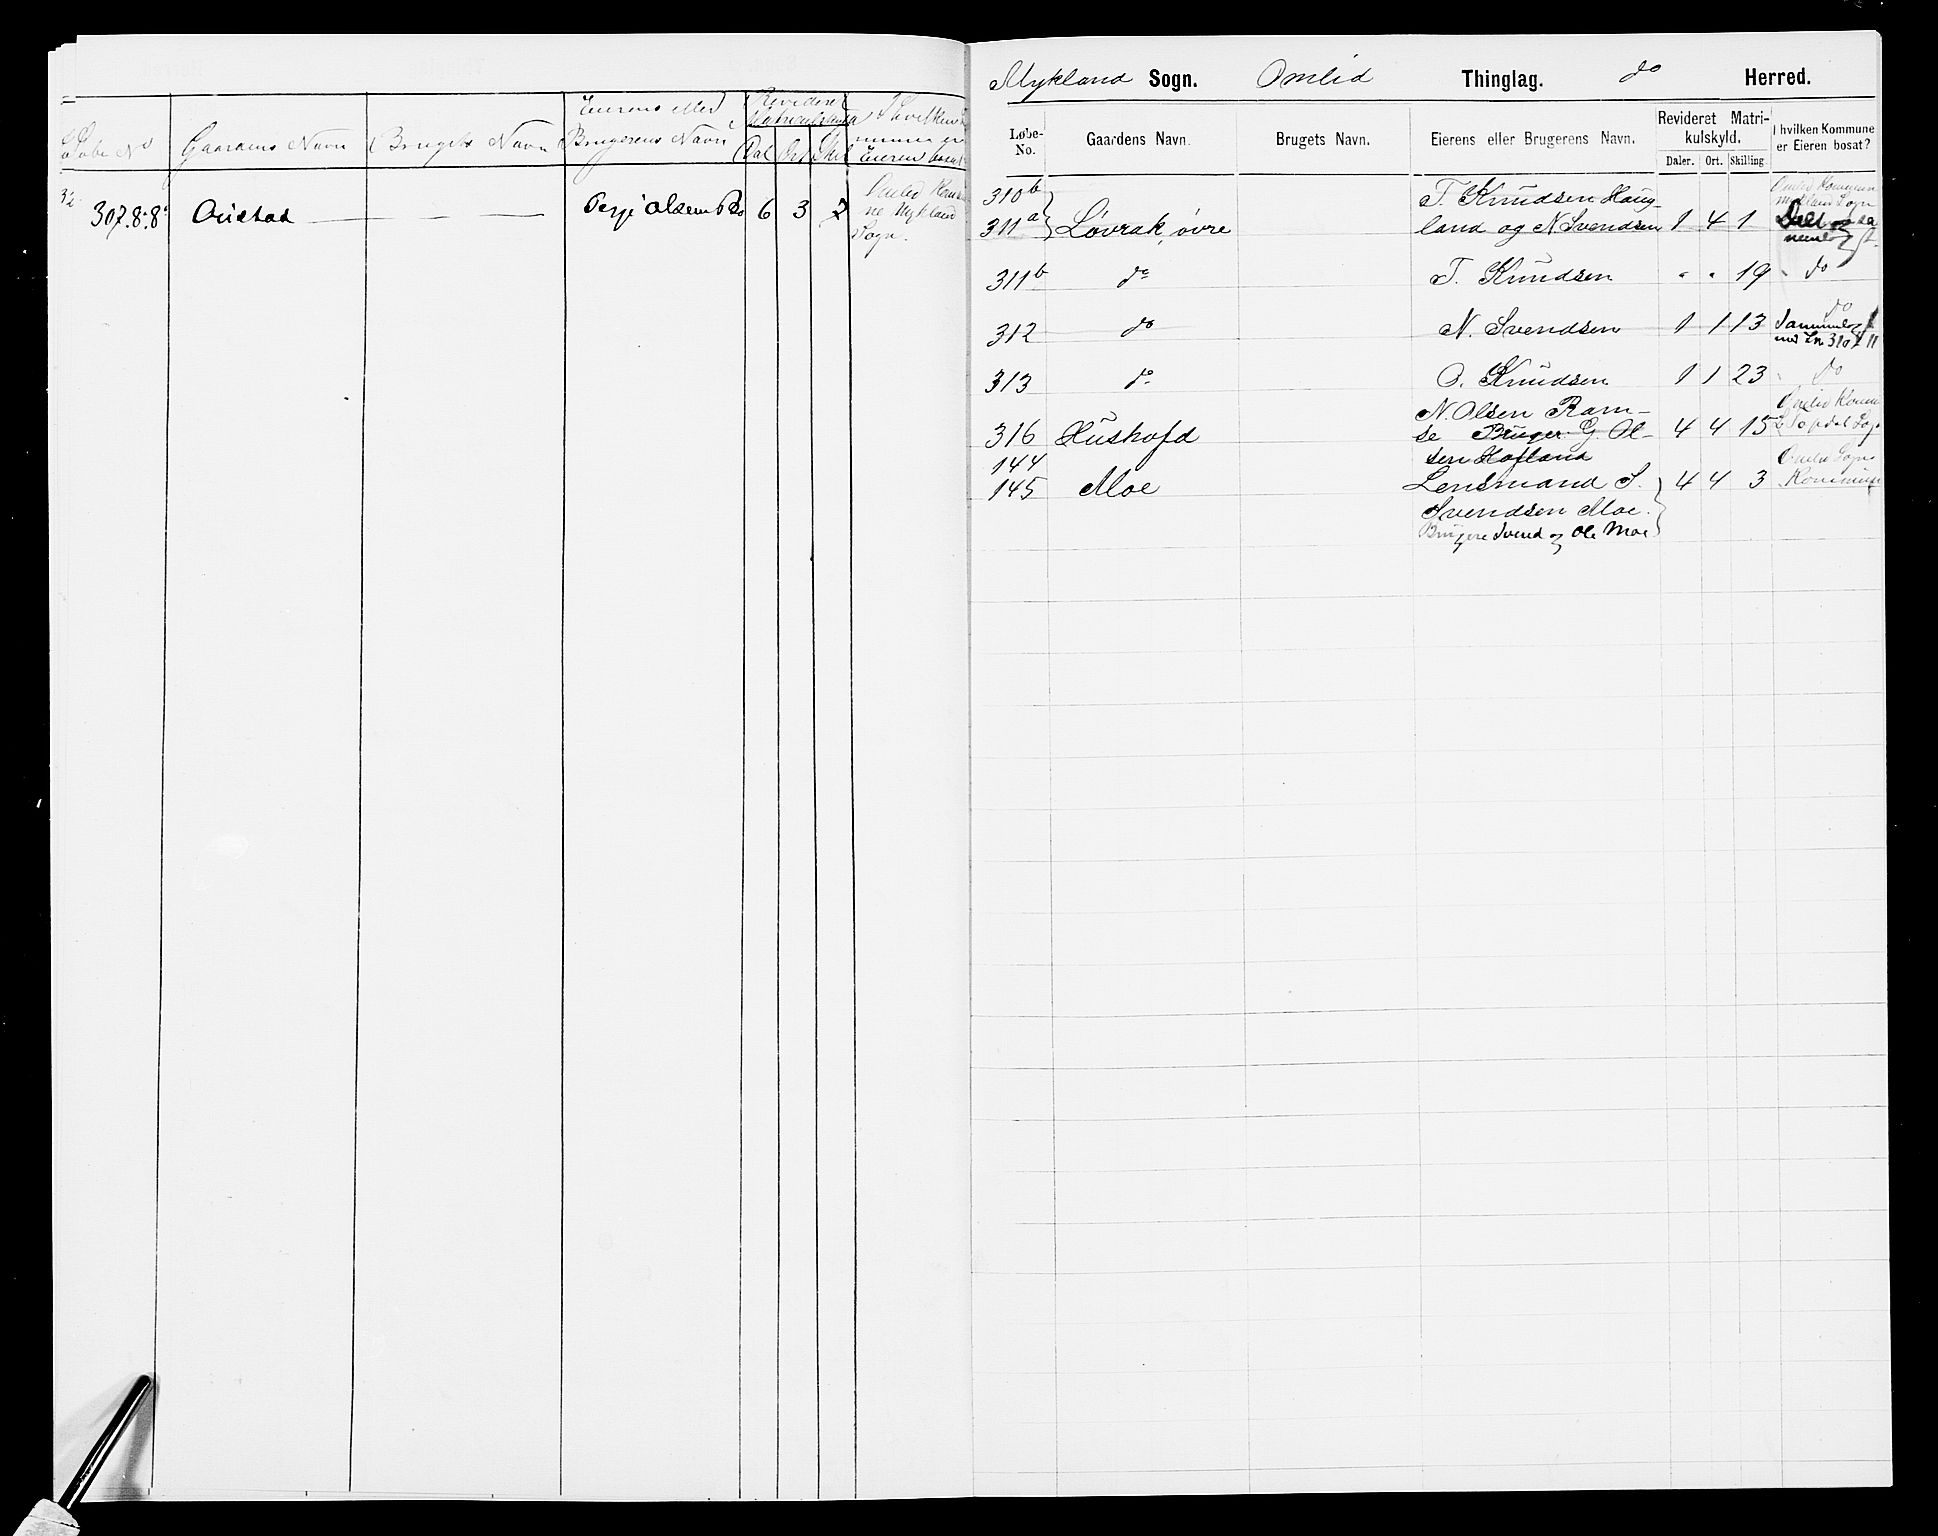 Løbe No
Gaardens Navn
Brugets Navn
Eierens eller
Brugerens Navn
Revideret
Matriculskyld
Dal Ort Skil
I hvilken
Eieren bosat
307.8.8
Austad
Terje Olsen 6 3 2
Omlid Kommu
ne Mykland
Sogn.
Mykland Sogn. Omlid Thinglag. do Herred.
Løbe-
No.
Gaardens Navn.
Brugets Navn.
Eierens eller Brugerens Navn.
Revideret Matri-
kulskyld.
Daler. Ort. Skilling.
I hvilken Kommune
er Eieren bosat?
310b
311a Løvrak, øvre
T. Knudsen Haug-
land og N Svendsen 1 4 1
Omlid Kommun
Mykland Sogn
311b do T. Knudsen " " 19 do
312 do N. Svendsen 1 1 13 do
313 do O. Knudsen 1 1 23 do
316 Hushofd
N. Olsen Ram-
se Bruger G. Ol-
sen Hofland
4 4 15
Omlid Komm
144
145 Moe
Lensmand S.
Svendsen Moe.
Brugere Svend og Ole Moe
4 4 3
Omlid Sogn
Kommune